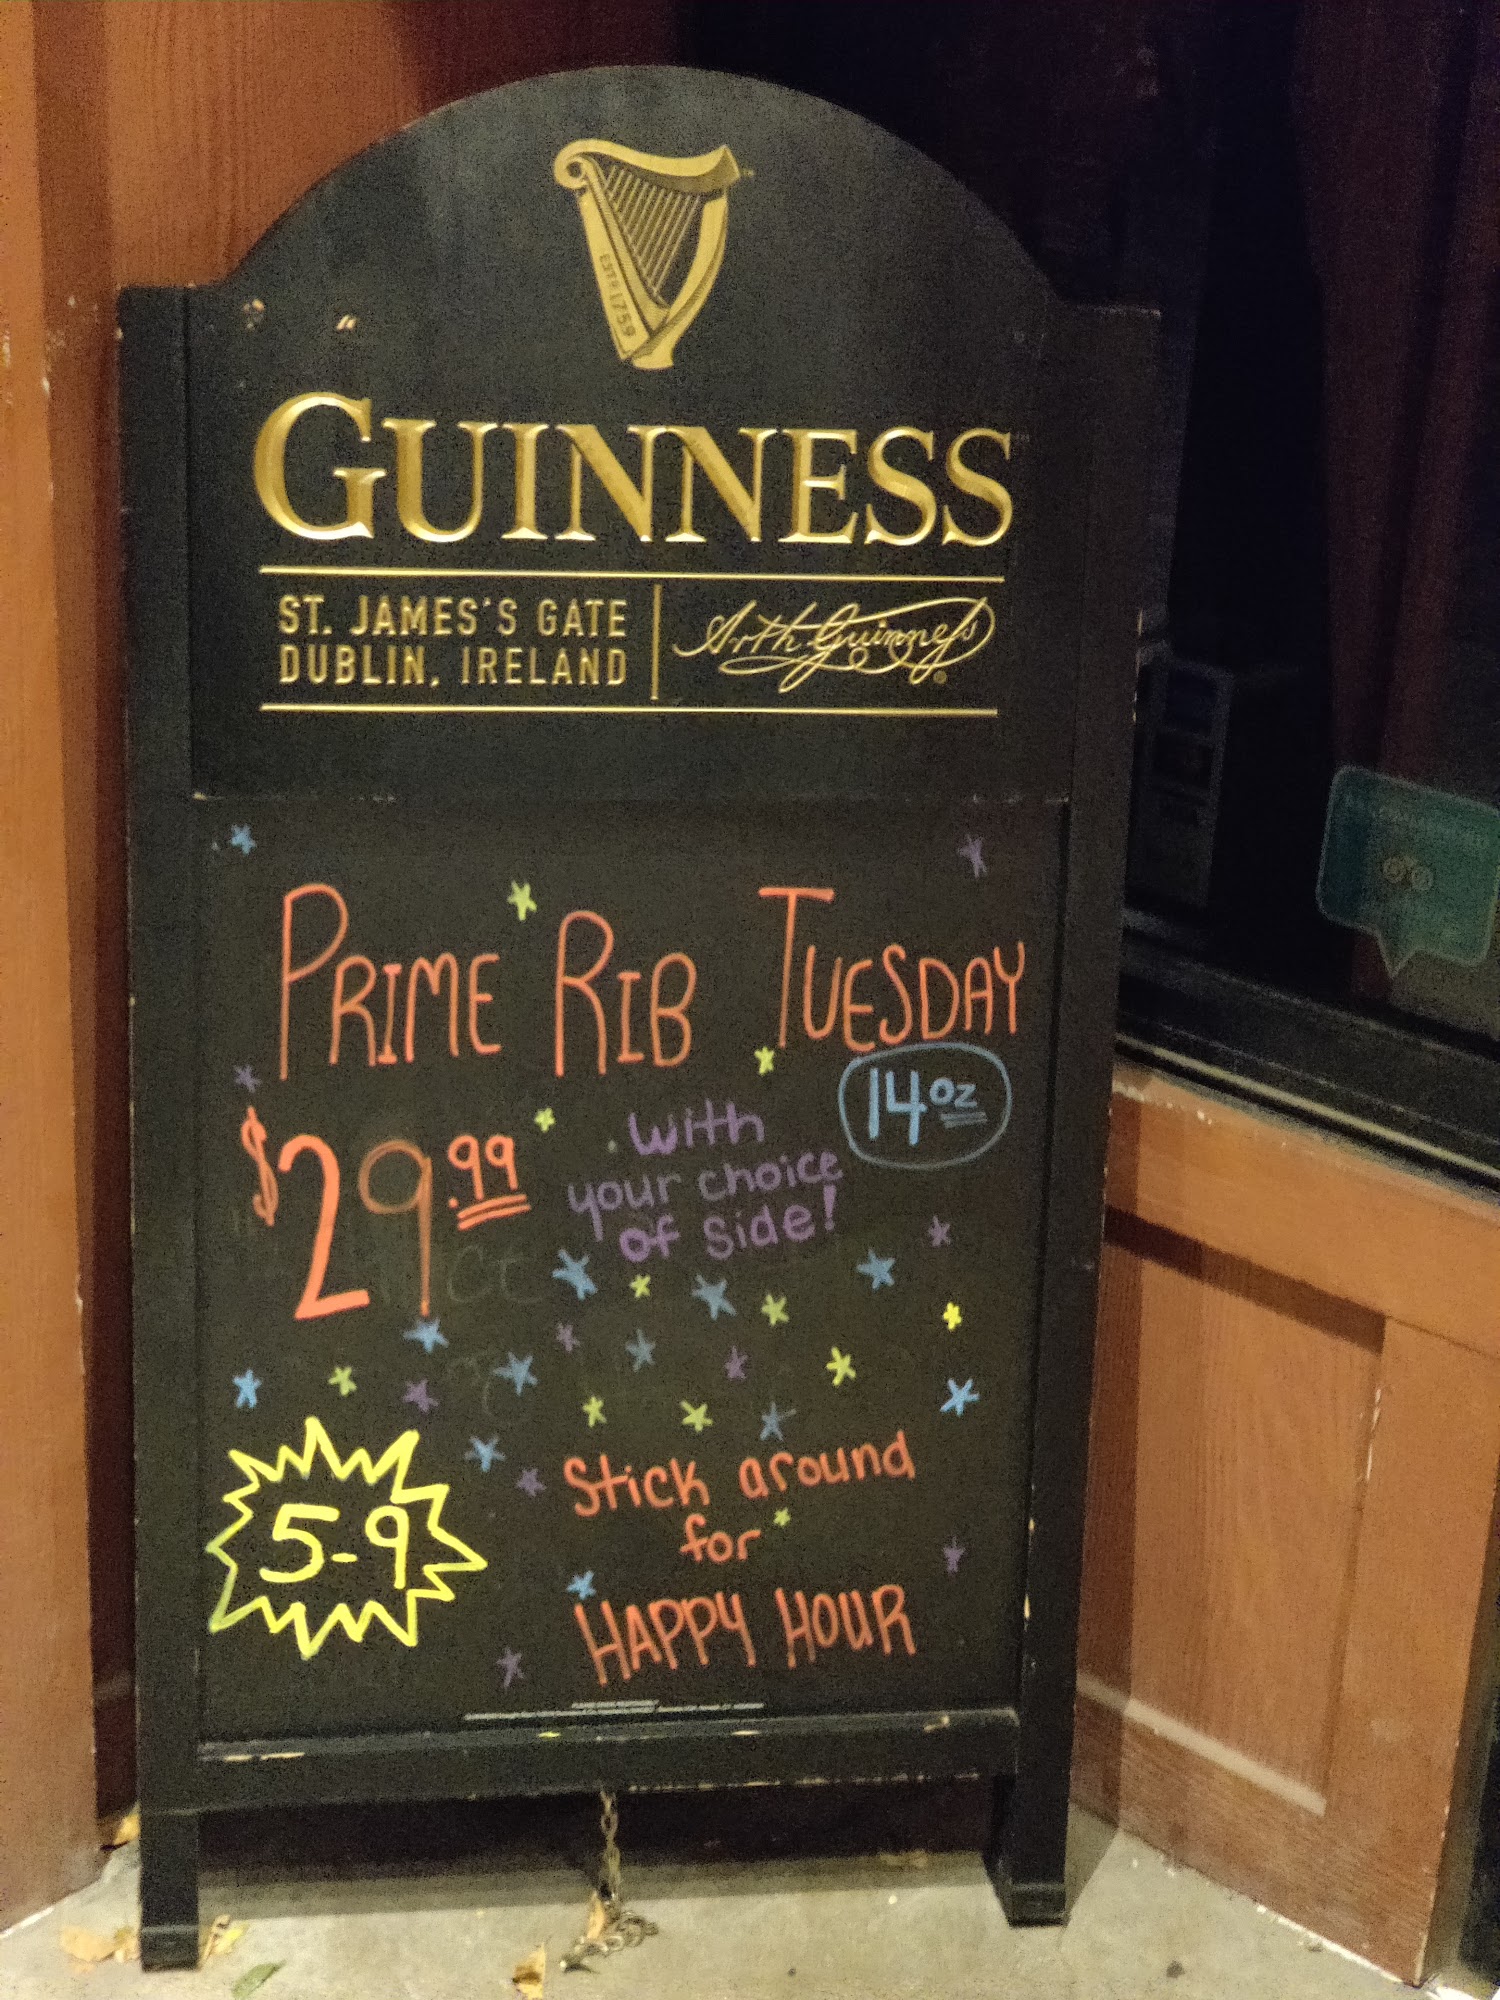 ESTD 1759
GUINNESS
ST. JAMES'S GATE
DUBLIN, IRELAND
Arth Guinness
PRIME RIB TUESDAY
14oz
$29.99
with
your choice
of side!
5-9
Stick around
for
HAPPY HOUR